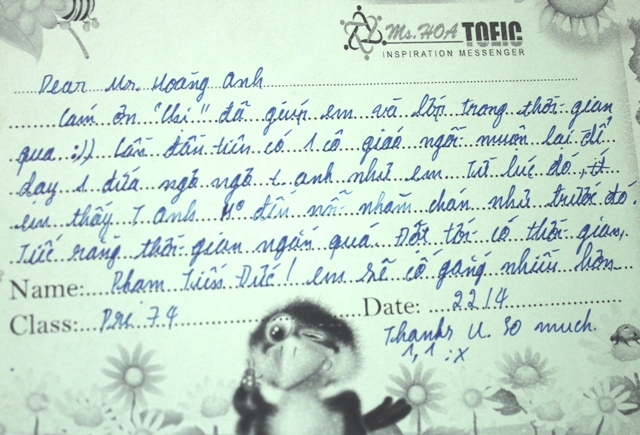 Ms. HOA TOEIC
INSPIRATION MESSENGER
Dear Mr. Hoàng Anh
Cám ơn "Chị" đã giúp em và lớp trong thời gian
qua :)) Lần đầu tiên có 1 cô giáo ngồi muộn lại để
dạy 1 đứa ngớ ngớ t. anh như em. Từ lúc đó,
em thấy T. Anh ko đến nỗi nhàm chán như trước đó.
Tiếc rằng thời gian ngắn quá. Đợt tới có thời gian,
Name: Phạm Tiến Đức / em sẽ cố gắng nhiều hơn
Class: Pre 74 Date: 22/4
Thanks U. so much.
1, 1 :x